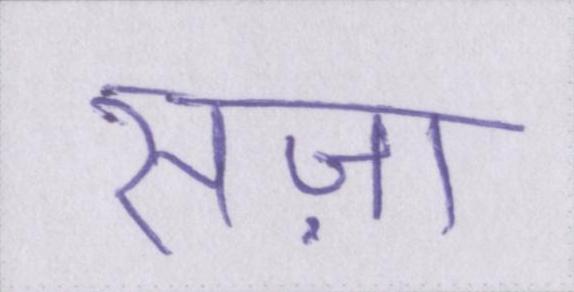 सज़ा